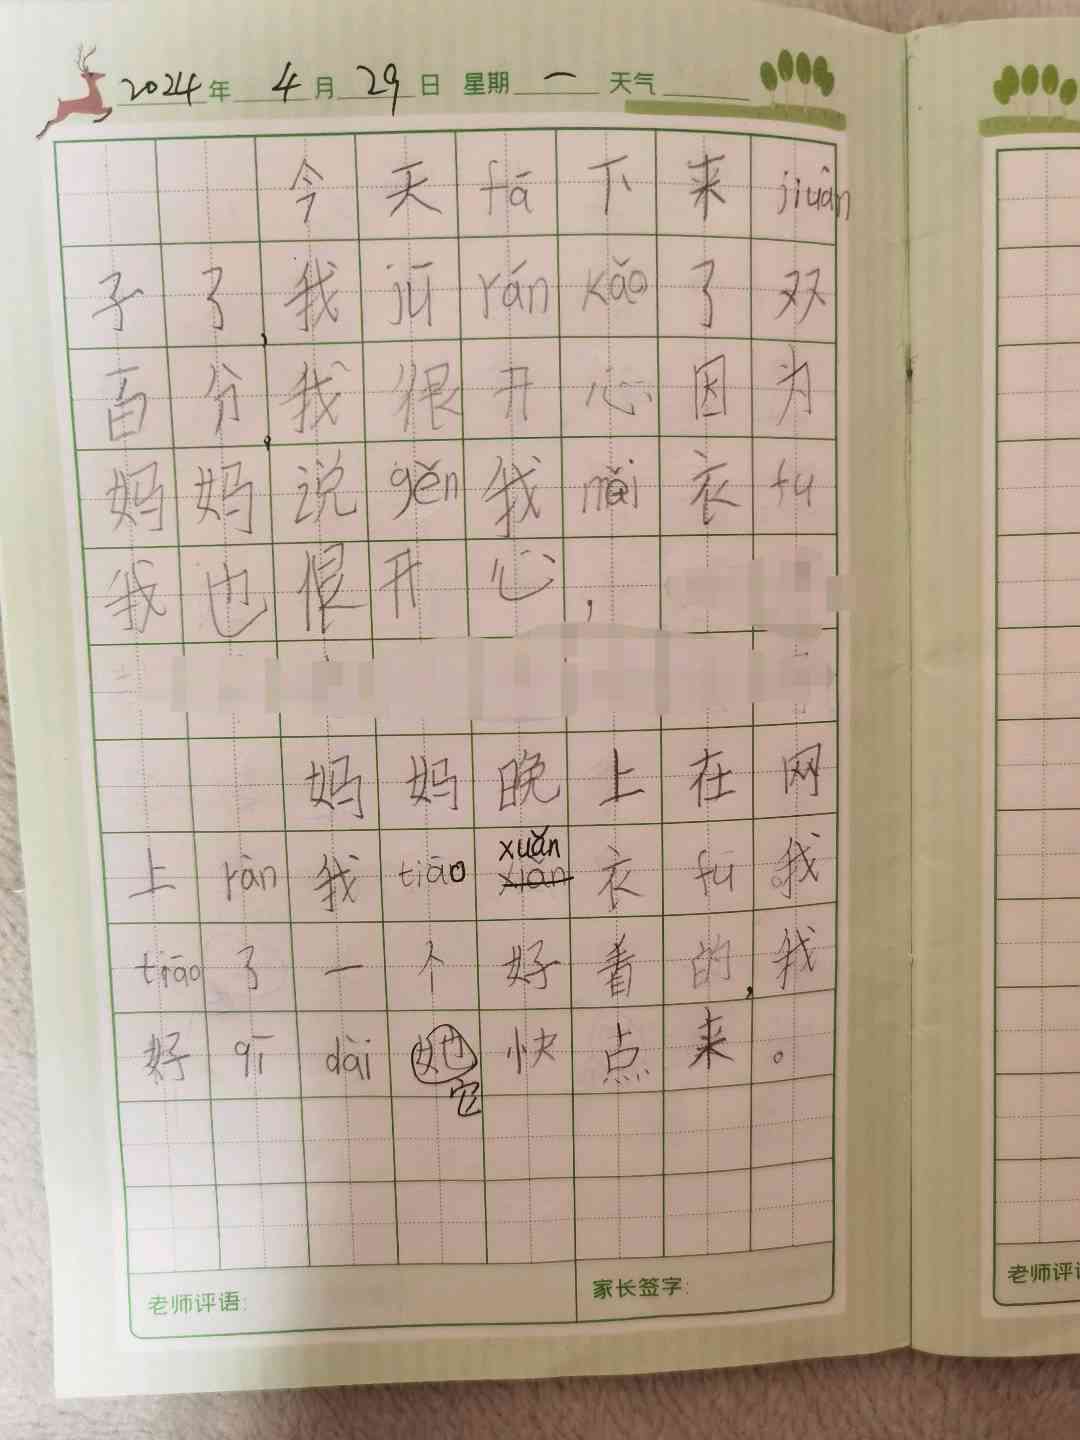 2024年 4月 29日 星期 一 天气
今天fā下来juàn
子了,我jū rán kǎo了双
百分,我很开心因为
妈妈说gěn我mǎi衣fu
我也恨开心,
妈妈晚上在网
上ràn我tiāo xuǎn衣fu我
tiāo了一个好看的,我
好qī dài她快点来。
它
老师评语:
家长签字:
老师评语